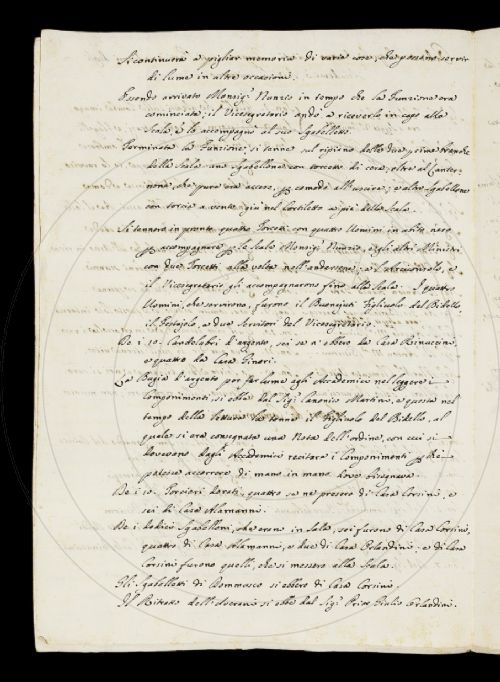 Si continuerà a pigliar memoria di varie cose, che possano servir
di lume in altre occasioni.
Essendo arrivato Monsig.r Nunzio in tempo che la Funzione era
cominciata; il Vicesegretario andò a riceverlo in capo alla
Scala, e lo accompagnò al suo Sgabellotto.
Terminata la Funzione, si tenne sul ripiano delle due prime branche
della Scala uno Sgabellone con torcetto di cera, oltre il Lanter-
none, che pure era acceso, p comodo all'uscire; e altro Sgabellone
con torcia a vento giù nel Cortiletto a piè della Scala.
Si tennero in pronto quattro Torcetti con quattro Uomini in abito nero
p accompagnare p le Scale Monsig.r Nunzio, e gli altri Ministri
con due Torcetti alla volta nell'andarsene; e l'Arciconsolo, e
il Vicesegretario gli accompagnarono fino alla Scala. I quattro
Uomini, che servirono, furono il Buonajuti Figliuolo del Bidello,
il Festajolo, e due Servitori del Vicesegretario.
De i 10. Candelabri d'argento, sei se n'ebbero da Casa Rinuccini,
e quattro da Casa Ginori.
La Bugia d'argento per far lume agli Accademici nel leggere i
Componimenti si ebbe dal Sig.r Canonico Martini, e questa nel
tempo della lettura la tenne il Figliuolo del Bidello, al
quale si era consegnata una Nota dell'ordine, con cui si
dovevano dagli Accademici recitare i Componimenti p che
potesse accorrere di mano in mano dove bisognava.
De i 10. Torcieri dorati, quattro se ne presero di Casa Corsini, e
sei di Casa Alamanni.
De i dodici Sgabelloni, che erano in Sala, sei furono di Casa Corsini,
quattro di Casa Alamanni, e due di Casa Orlandini; e di Casa
Corsini furono quelli, che si messero alla Scala.
Gli Sgabellotti di Dommasco si ebbero di Casa Corsini.
Il Ritratto dell'Averani si ebbe dal Sig.r Giulio Orlandini.